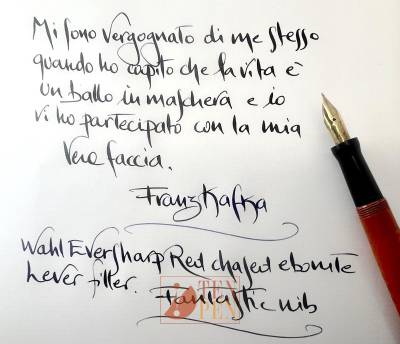 Mi sono vergognato di me stesso
quando ho capito che la vita è
un ballo in maschera e io
vi ho partecipato con la mia
vera faccia.
Franz Kafka
Wahl Eversharp Red chased ebonite
Lever filler. Fantastic nib
TEN
PEN